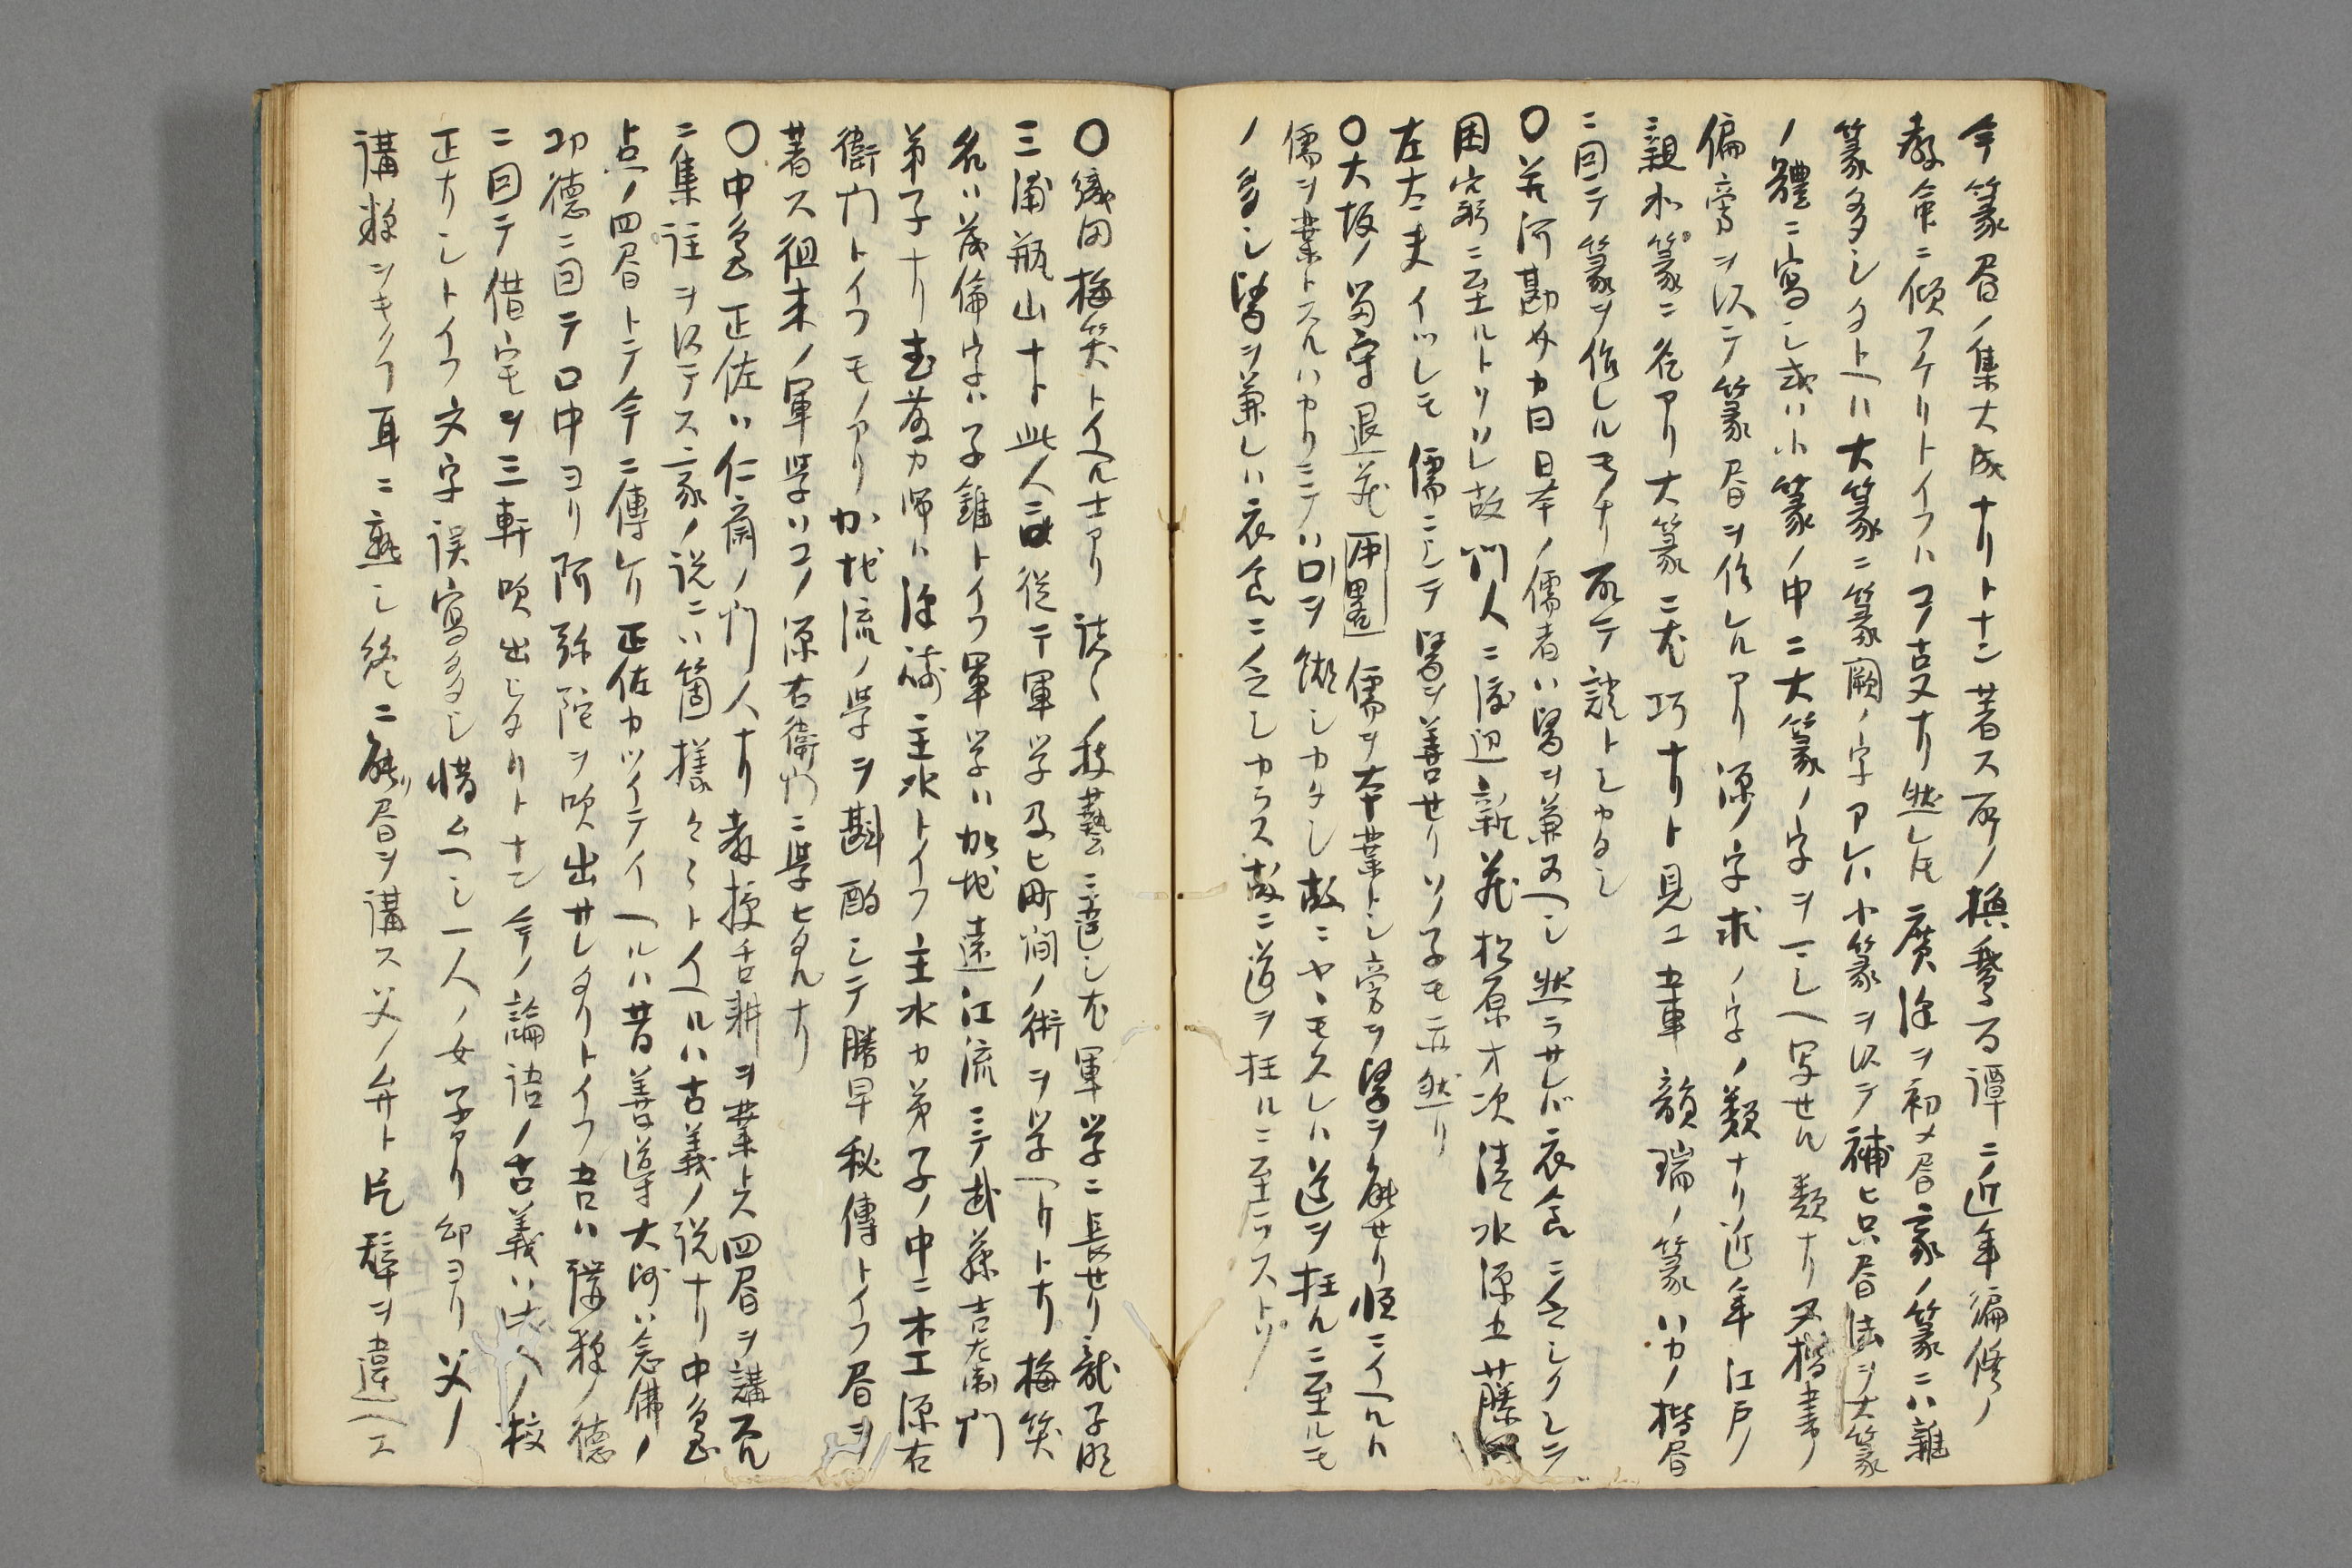 今篆書ノ集大成ナリトナン著ス所ノ換鵞百譚ニ近年編修ノ
教命ニ傾フケリトイフハコノ吉叟ナリ然レ𪜈廣澤ヲ初メ書家ノ篆ニハ雜
篆多シタトヘハ大篆ニ篆闕ノ字アレハ小篆ヲ以テ補ヒ只書法ヲ大篆
ノ體ニ寫シ或ハ小篆ノ中ニ大篆ノ字ヲマシヘ写セル類ナリ又楷書ノ
偏旁ヲ以テ篆書ヲ作レルアリ源ノ字求ノ字ノ類ナリ近年江戸ノ
親和篆ニ名アリ大篆ニ尤巧ナリト見ユ五車韻瑞ノ篆ハカノ楷書
ニ因テ篆ヲ作レルモノナリ取テ證トシカタシ
〇芥河勘介カ曰日本ノ儒者ハ醫ヲ兼ヌヘシ然ラサレバ衣食ニ乏シクシテ
困窮ニ至ルトソソレ故門人ニ渡辺新藏松原才次清水源五藤田
左太夫イツレモ儒ニシテ醫ヲ善セリソノ子モ亦然リ
〇大坂ノ留守退藏 儒ヲ本業トシ旁ヲ醫ヲ能セリ恒ニイヘルハ
儒ヲ業トスルハカリニテハ口ヲ餬シカタシ故ニヤヽモスレハ道ヲ枉ルニ至ルモ
ノ多シ醫ヲ兼レハ衣食ニ乏シカラス故ニ道ヲ枉ルニ至ラストソ
〇織田梅笑トイヘル士アリ諸〻ノ技藝ニ達シ尤軍学ニ長セリ龍子明
三浦瓶山ナト此人ニ従テ軍学及ヒ町間ノ術ヲ学ヘリトナリ梅笑
名ハ茂倫字ハ子錐トイフ軍学ハ加地遠江流ニテ武藤吉左衛門
弟子ナリ武藤カ師ハ深濤主水トイフ主水カ弟子ノ中ニ木工源右
衛門トイフモノアリ加地流ノ学ヲ斟酌シテ勝早秘傳トイフ書ヲ
著ス徂来ノ軍学ハコノ源右衛門ニ学ヒタルナリ
〇中島正佐ハ仁齋ノ門人ナリ教授舌耕ヲ業トス四書ヲ講スル
ニ集註ヲ以テス家ノ説ニハ箇様々々トイヘルハ古義ノ説ナリ中島
点ノ四書トテ今ニ傳ヘリ正佐カツイテイヘルハ昔善導大師ハ念佛ノ
功徳ニ因テ口中ヨリ阿弥陀ヲ吹出サレタリトイフ吾ハ講釋ノ徳
ニ因テ借宅ヲ三軒吹出シタリトナン今ノ論語ノ古義ハ此人ノ校
正ナリシトイフ文字誤寫多シ惜ムヘシ一人ノ女子アリ幼ヨリ父ノ
講釋ヲキヽ耳ニ熟シ終ニ能書ヲ講ス父ノ弁ト片辞ヲ違ヘス